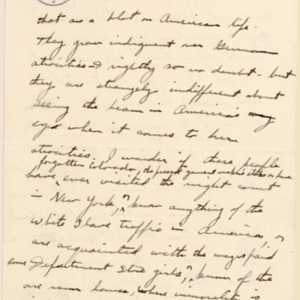 that are a blot on American life.
They grow indignant over German
atrocities & rightly so no doubt - but
they are strangely indifferent about
seeing the beam in America's
eye when it comes to her
atrocities. I wonder if these people
forgotten Colorado, the present general
have ever visited the night court
in New York, know anything of the
White Slave traffic in America
are acquainted with the wages paid
some Department Store girls, know of the